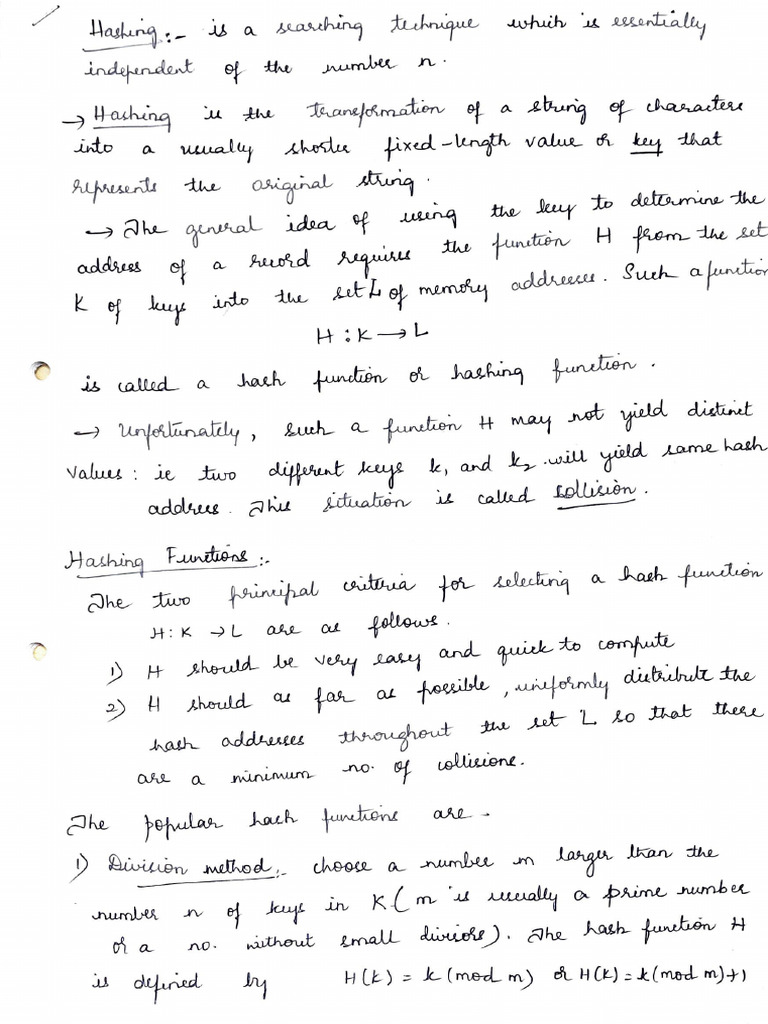 Hashing :- is a searching technique which is essentially
independent of the number n.
→ Hashing is the transformation of a string of characters
into a usually shorter fixed-length value or key that
represents the original string.
→ The general idea of using the key to determine the
address of a record requires the function H from the set
K of keys into the set L of memory addresses. Such a function
H : K → L
is called a hash function or hashing function.
→ Unfortunately, such a function H may not yield distinct
values : ie two different keys k₁ and k₂ will yield same hash
address. This situation is called collision.
Hashing Functions :-
The two principal criteria for selecting a hash function
H : K → L are as follows.
1) H should be very easy and quick to compute
2) H should as far as possible, uniformly distribute the
hash addresses throughout the set L so that there
are a minimum no. of collisions.
The popular hash functions are -
1) Division method :- choose a number m larger than the
number n of keys in K (m is usually a prime number
or a no. without small divisors). The hash function H
is defined by H(K) = k (mod m) or H(K) = k(mod m)+1